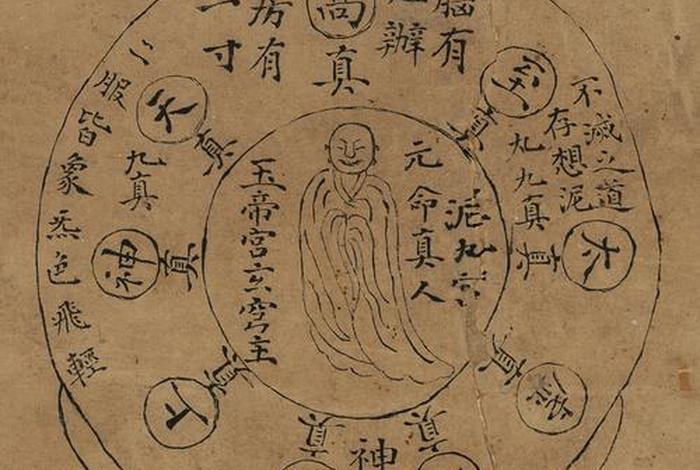 腦有
辦
高真
房有
一寸
不滅之道
存想泥
丸九真
至真
太真
真
元命真人
泥丸宮
玉帝宮玄穹主
天真
九真
神真
上真
二服皆象炁色飛輕
真
神
真